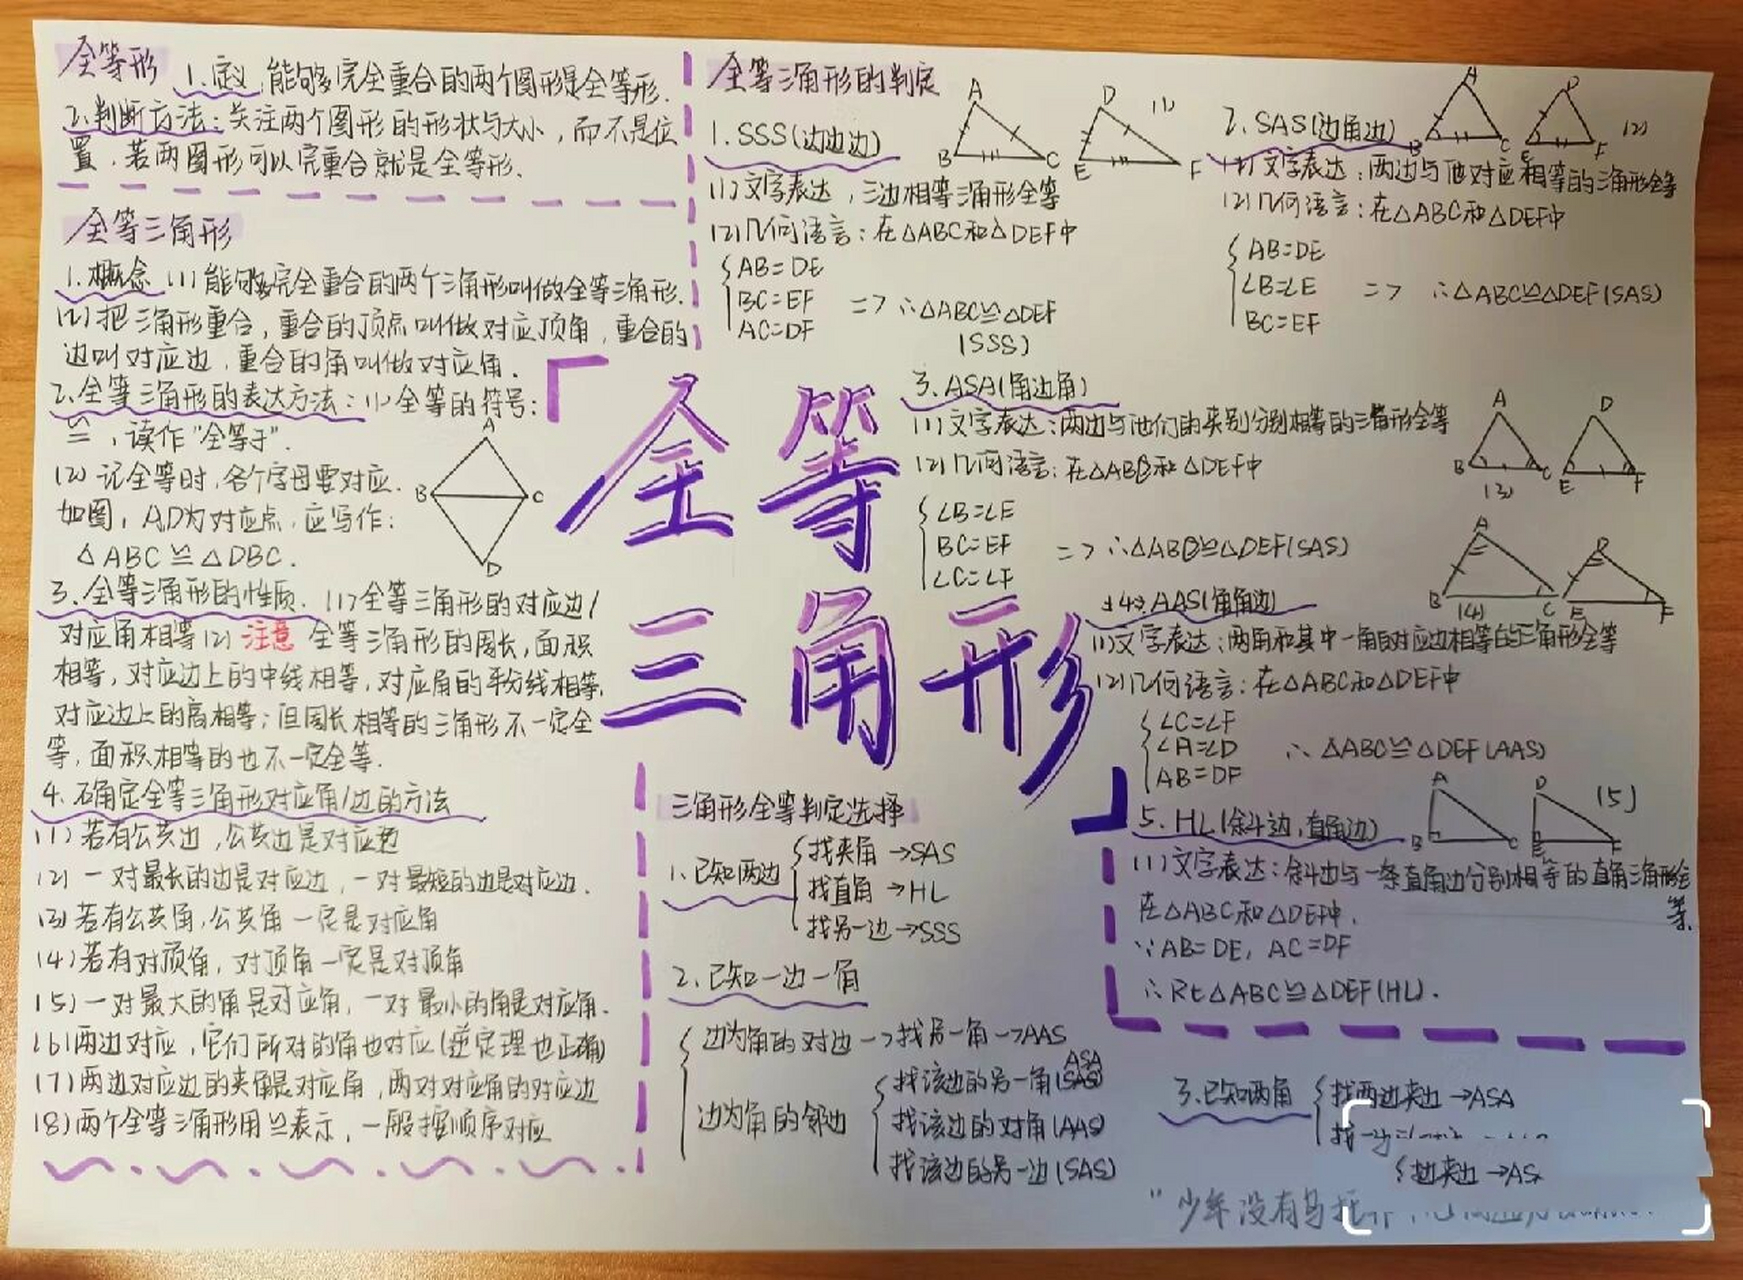 全等形
1.定义 能够完全重合的两个图形是全等形.
2.判断方法:关注两个图形的形状与大小,而不是位
置.若两图形可以完重合就是全等形.
全等三角形
1.概念 (1)能够完全重合的两个三角形叫做全等三角形.
(2)把三角形重合,重合的顶点叫做对应顶角,重合的
边叫对应边,重合的角叫做对应角.
2.全等三角形的表达方法:(1)全等的符号:
≌,读作"全等于".
(2)记全等时,各个字母要对应.
如图,A,D为对应点,应写作:
△ABC≌△DBC.
A
B
C
D
3.全等三角形的性质.(1)全等三角形的对应边/
对应角相等(2)注意 全等三角形的周长,面积
相等,对应边上的中线相等,对应角的平分线相等,
对应边上的高相等;但周长相等的三角形不一定全
等,面积相等的也不一定全等.
4.确定全等三角形对应角/边的方法
(1)若有公共边,公共边是对应边
(2)一对最长的边是对应边,一对最短的边是对应边.
(3)若有公共角,公共角一定是对应角
(4)若有对顶角,对顶角一定是对顶角
(5)一对最大的角是对应角,一对最小的角是对应角.
(6)两边对应,它们所对的角也对应(逆定理也正确)
(7)两边对应边的夹角是对应角,两对对应角的对应边
(8)两个全等三角形用≌表示,一般按顺序对应
「全等
三角形」
全等三角形的判定
1.SSS(边边边)
A
B
C
D
E
F
(1)
(1)文字表达,三边相等三角形全等
(2)几何语言:在△ABC和△DEF中
AB=DE
BC=EF => ∴△ABC≌△DEF
AC=DF
(SSS)
2.SAS(边角边)
A
B
C
D
E
F
(2)
(1)文字表达:两边与他对应相等的三角形全等
(2)几何语言:在△ABC和△DEF中
AB=DE
∠B=∠E => ∴△ABC≌△DEF(SAS)
BC=EF
3.ASA(角边角)
(1)文字表达:两边与他们的夹别分别相等的三角形全等
(2)几何语言:在△ABC和△DEF中
∠B=∠E
BC=EF => ∴△ABC≌△DEF(SAS)
∠C=∠F
A
B
C
D
E
F
(3)
4.AAS(角角边)
A
B
C
D
E
F
(4)
(1)文字表达:两角和其中一角的对应边相等的三角形全等
(2)几何语言:在△ABC和△DEF中
∠C=∠F
∠A=∠D ∴△ABC≌△DEF(AAS)
AB=DF
5.HL(斜边,直角边)
A
B
C
D
E
F
(5)
(1)文字表达:斜边与一条直角边分别相等的直角三角形全
等.
在△ABC和△DEF中.
∵AB=DE, AC=DF
∴Rt△ABC≌△DEF(HL).
三角形全等判定选择
1.已知两边
找夹角→SAS
找直角→HL
找另一边→SSS
2.已知一边一角
边为角的对边→找另一角→AAS
边为角的邻边
找该边的另一角(SAS)
ASA
找该边的对角(AAS)
找该边的另一边(SAS)
3.已知两角
找两边夹边→ASA
找一
边夹边→AS
"少年没有乌托